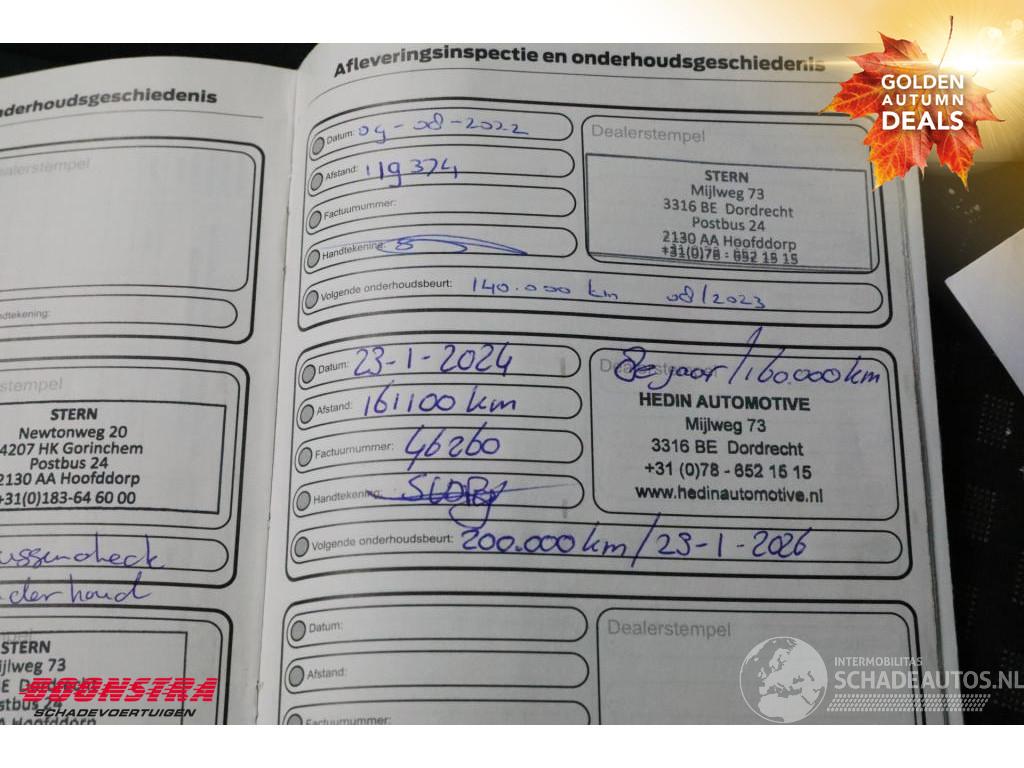 GOLDEN
AUTUMN
DEALS
nderhoudsgeschiedenis
ealerstempel
ndtekening:
stempel
STERN
Newtonweg 20
4207 HK Gorinchem
Postbus 24
2130 AA Hoofddorp
+31(0)183-64 60 00
ussencheck
derhoud
STERN
ijlweg 73
Afleveringsinspectie en onderhoudsgeschiedenis
Datum: 09-08-2022
Afstand: 119374
Factuurnummer:
Handtekening:
Volgende onderhoudsbeurt: 140.000 km 08/2023
Dealerstempel
STERN
Mijlweg 73
3316 BE Dordrecht
Postbus 24
2130 AA Hoofddorp
+31(0)78 - 652 15 15
Datum: 23-1-2024
Afstand: 161100 km
Factuurnummer: 46260
Handtekening:
Volgende onderhoudsbeurt: 200.000 km / 23-1-2026
Dealerstempel
8e jaar / 160.000 km
HEDIN AUTOMOTIVE
Mijlweg 73
3316 BE Dordrecht
+31 (0)78 - 652 15 15
www.hedinautomotive.nl
Datum:
Afstand:
Factuurnummer:
Dealerstempel
BOONSTRA
SCHADEVOERTUIGEN
INTERMOBILITAS
SCHADEAUTOS.NL